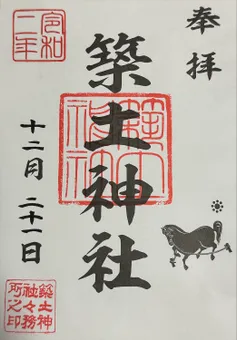 奉拝
築土神社
十二月二十一日
令和
二年
築土神
社々務
所之印